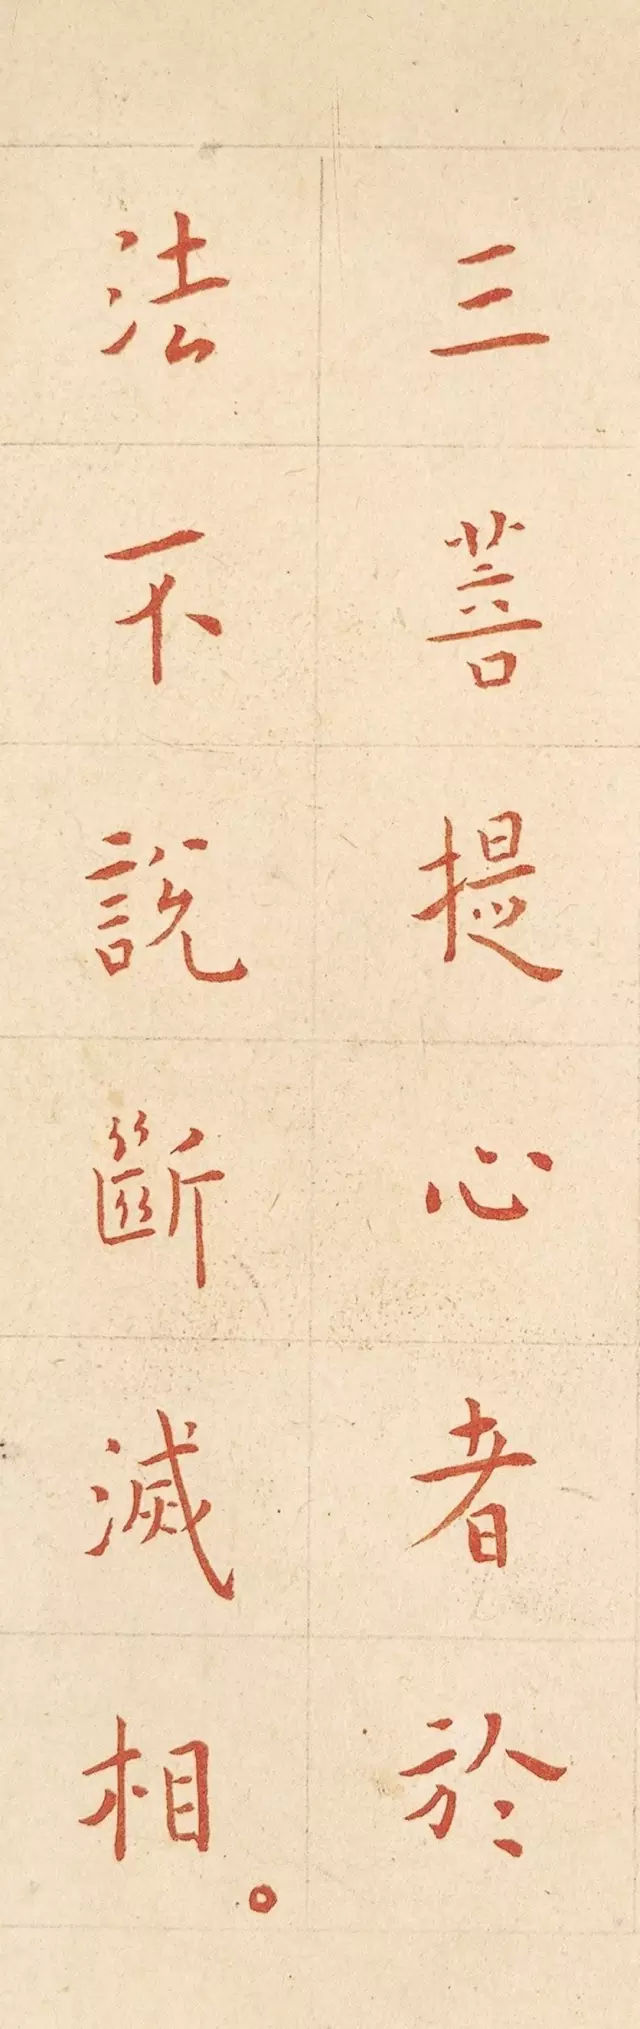 三菩提心者於
法不說斷滅相。